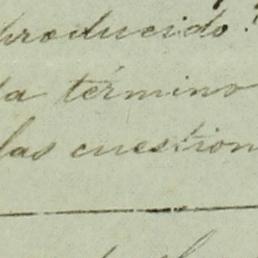 producido.
da término
las cuestion